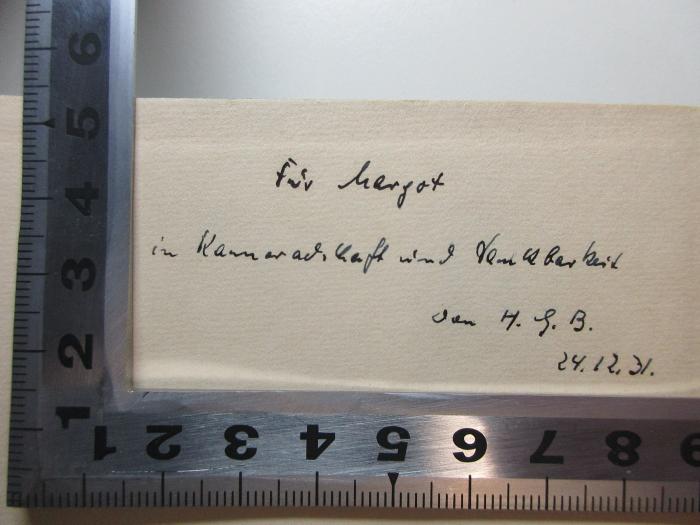 Für Margot
in Kameradschaft und Dankbarkeit
von H. G. B.
24.12.31.
6
5
4
3
2
1
1 2 3 4 5 6 7 8 9